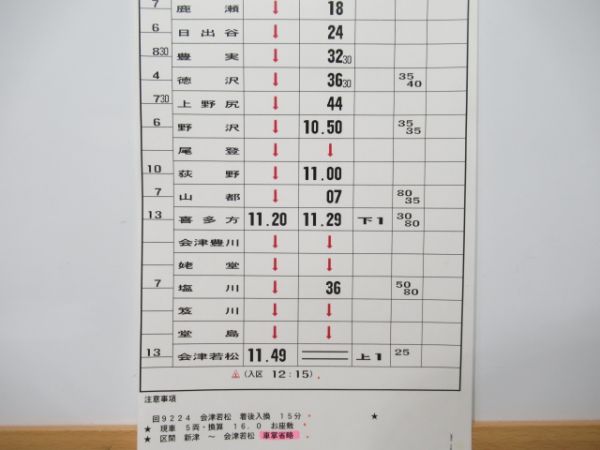 7 鹿瀬 ↓ 18
6 日出谷 ↓ 24
830 豊実 ↓ 3230
4 徳沢 ↓ 3630 35 40
730 上野尻 ↓ 44
6 野沢 ↓ 10.50 35 35
尾登 ↓ ↓
10 荻野 ↓ 11.00
7 山都 ↓ 07 80 35
13 喜多方 11.20 11.29 下1 30 80
会津豊川 ↓ ↓
姥堂 ↓ ↓
7 塩川 ↓ 36 50 80
笈川 ↓ ↓
堂島 ↓ ↓
13 会津若松 11.49 上1 25
(入区 12:15)
注意事項
回9224 会津若松 着後入換 15分 ★
★ 現車 5両・換算 16.0 お座敷
★ 区間 新津 ~ 会津若松 車掌省略